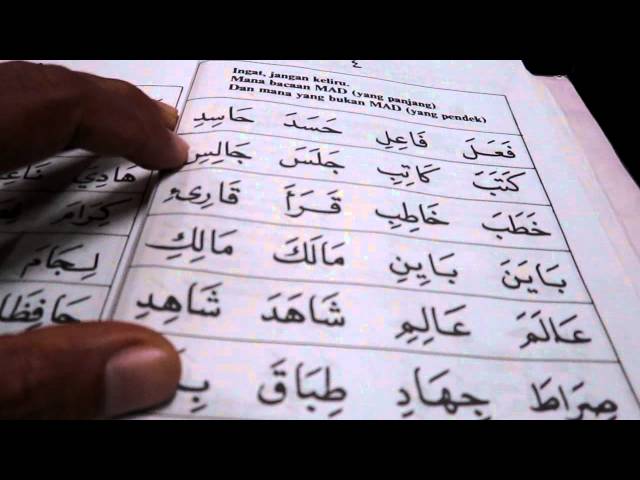 ٤
Ingat, jangan keliru.
Mana bacaan MAD (yang panjang)
Dan mana yang bukan MAD (yang pendek)
فَعَلَ فَاعِلِ حَسَدَ حَاسِدِ
كَتَبَ كَاتِبِ جَلَسَ جَالِسِ
خَطَبَ خَاطِبِ قَرَأَ قَارِىءِ
بَايَنَ بَايِنِ مَالَكَ مَالِكِ
عَالَمَ عَالِمِ شَاهَدَ شَاهِدِ
صِرَاطَ جِهَادِ طِبَاقَ
هَادِي
كِرَامَ
لِجَامَ